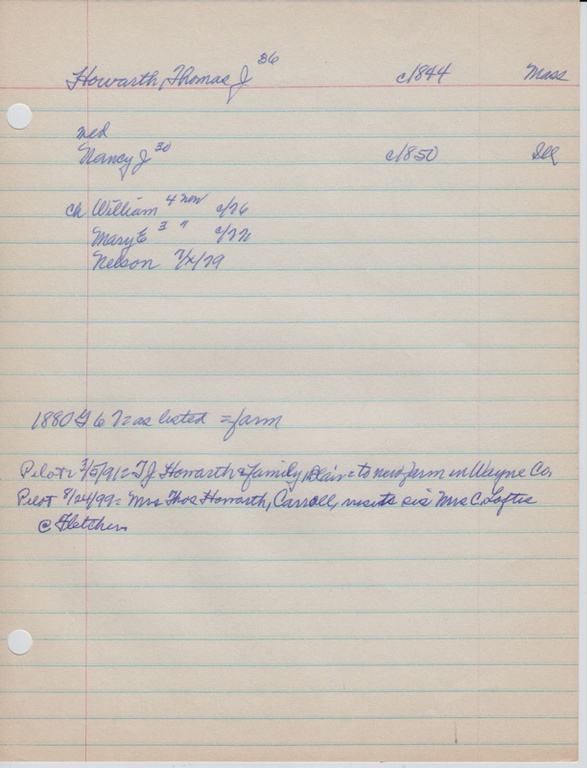 Howarth, Thomas J 36 c/1844 Mass
med
Nancy J 30 c/1850 Ill
ch William 4 nov c/76
Mary E 3 " c/77
Nelson 7/x/79
1880 G 6 7= as listed = farm
Pilot= 3/5/91= T J Howarth & family, Blair= to new farm in Wayne Co.
Pilot 8/24/99= Mrs Thos Howarth, Carroll, visits sis Mrs C. Loftis
@ Fletchers